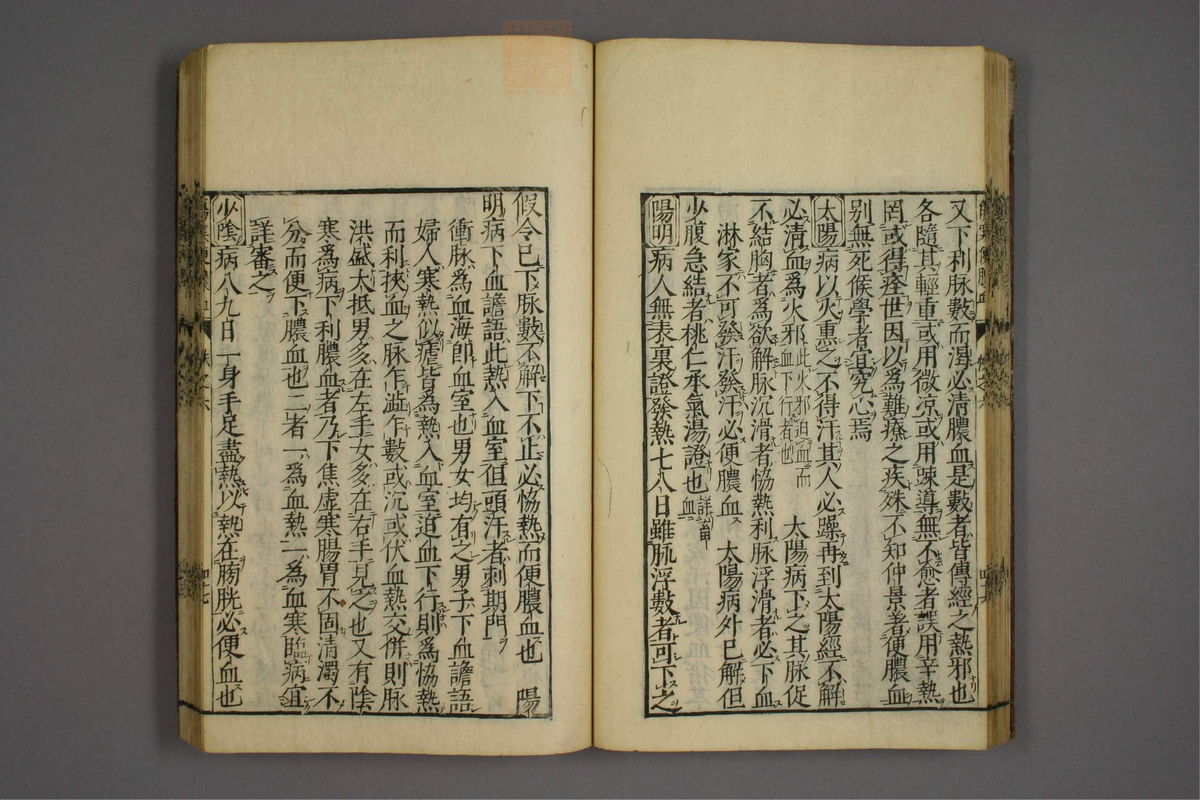 又下利脉數而渴必清膿血是數者皆傳經之熱邪也
各隨其輕重或用微凉或用疎導無不愈者誤用辛熱
罔或得痊世因以爲難療之疾殊不知仲景著便膿血
别無死候學者宜究心焉
太陽病以火熏之不得汗其人必躁再到太陽經不解
必清血爲火邪此火邪迫血而血下行者也太陽病下之其脉促
不結胸者爲欲解脉沉滑者恊熱利脉浮滑者必下血
淋家不可發汗發汗必便膿血太陽病外已解但
少腹急結者桃仁承氣湯證也詳畜血
陽明病人無表裏證發熱七八日雖脉浮數者可下之
假令已下脉數不解下不止必恊熱而便膿血也陽
明病下血譫語此熱入血室但頭汗者刺期門
衝脉爲血海即血室也男女均有之男子下血譫語
婦人寒熱似瘧皆爲熱入血室迫血下行則爲恊熱
而利挾血之脉乍澁乍數或沉或伏血熱交併則脉
洪盛大抵男多在左手女多在右手見之也又有陰
寒爲病下利膿血者乃下焦虚寒腸胃不固清濁不
分而便下膿血也二者一爲血熱一爲血寒臨病宜
詳審之
少陰病八九日一身手足盡熱以熱在膀胱必便血也